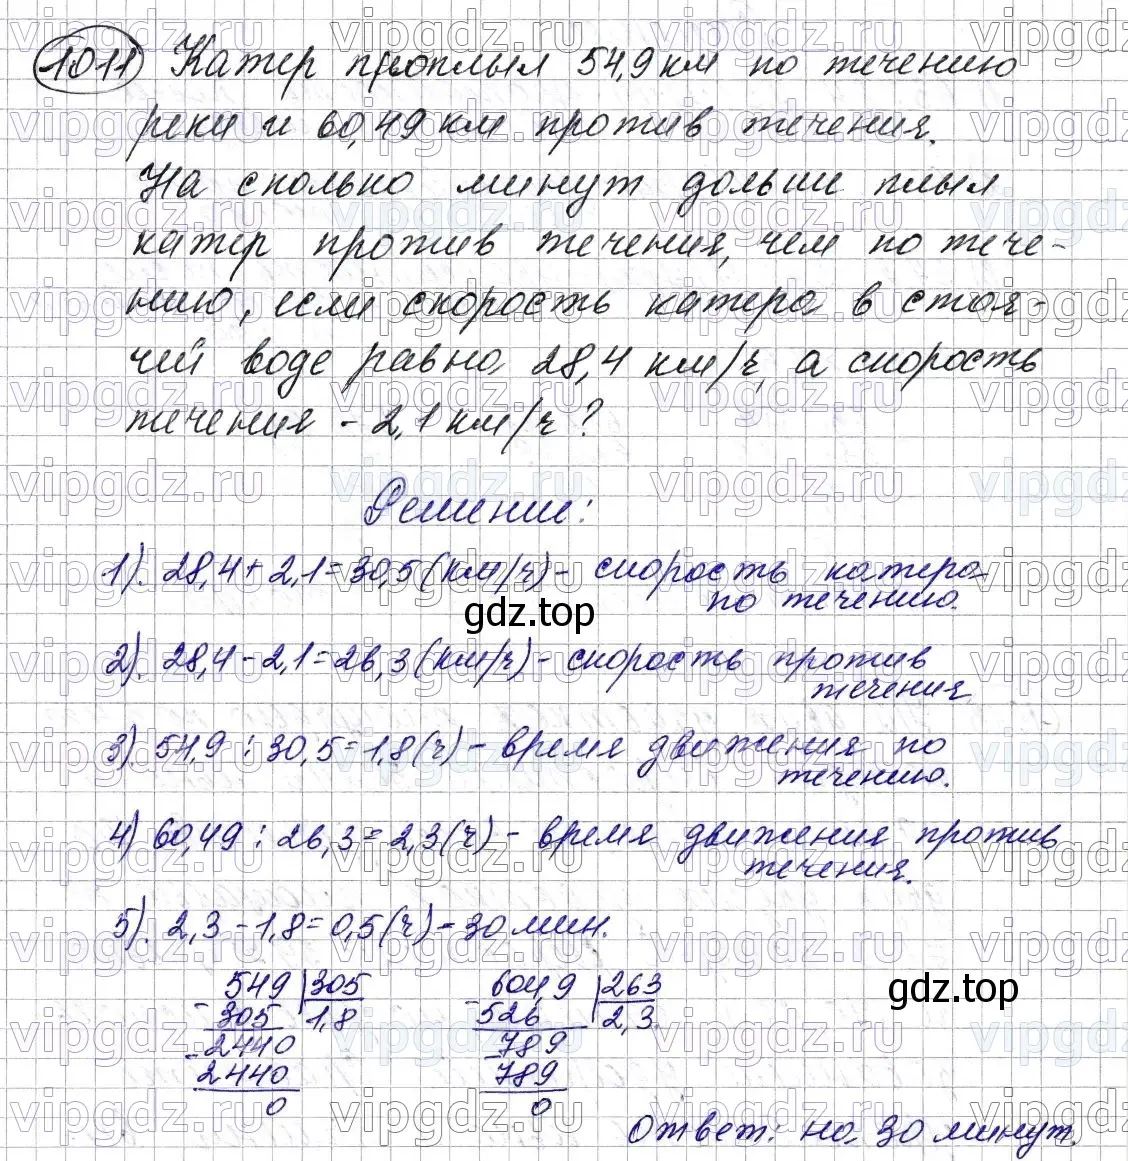 1011 Катер проплыл 54,9 км по течению
реки и 60,49 км против течения.
На сколько минут дольше плыл
катер против течения, чем по тече-
нию, если скорость катера в стоя-
чей воде равна 28,4 км/ч, а скорость
течения - 2,1 км/ч?
Решение:
1). 28,4 + 2,1 = 30,5 (км/ч) - скорость катера
по течению.
gdz.top
2). 28,4 - 2,1 = 26,3 (км/ч) - скорость против
течения
3) 54,9 : 30,5 = 1,8 (ч) - время движения по
течению.
4) 60,49 : 26,3 = 2,3 (ч) - время движения против
течения.
5). 2,3 - 1,8 = 0,5 (ч) = 30 мин.
549 | 305
- 305 1,8
- 2440
2440
0
604,9 | 263
- 526 2,3
- 789
789
0
gdz.top
Ответ: на 30 минут.
vipgdz.ru